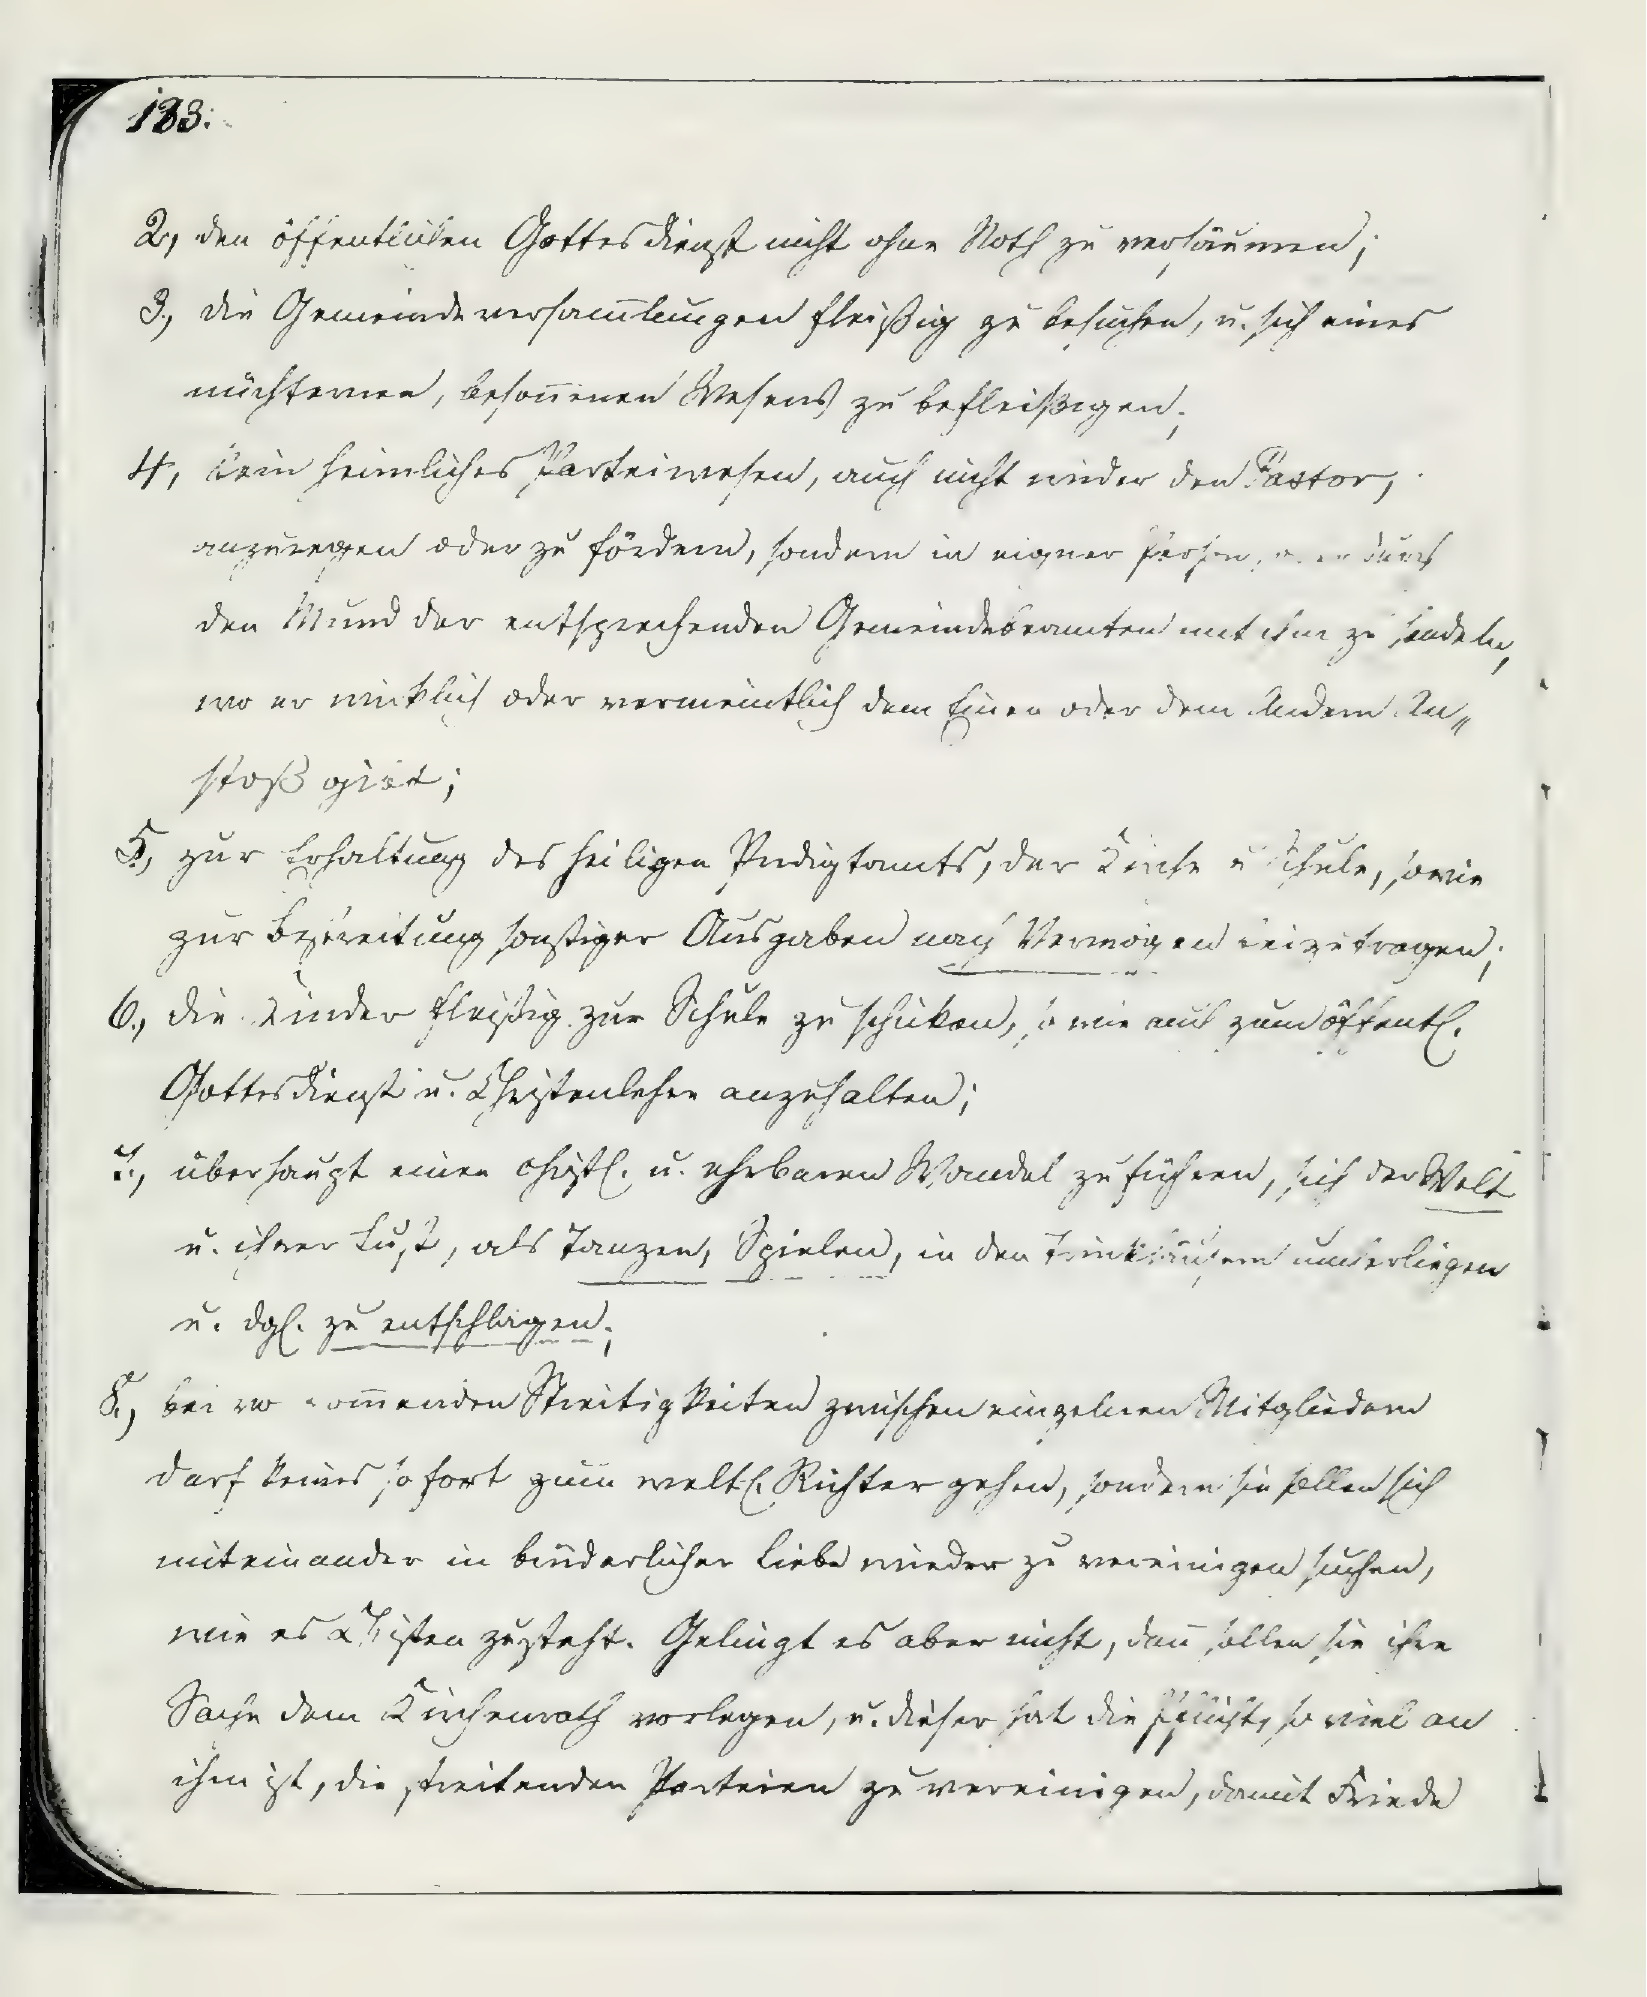 133.
2., den öffentlichen Gottesdienst nicht ohne Noth zu versäumen;
3., die Gemeindeversam̄lungen fleißig zu besuchen, u. sich eines
nüchternen, beson̄enen Wesens zu befleißigen;
4, kein heimliches Parteiwesen, auch nicht wider den Pastor,
anzuregen oder zu fördern, sondern in eigner Person, oder durch
den Mund der entsprechenden Gemeindebeamten mit ihm zu handeln,
wo er wirklich oder vermeintlich dem Einen oder dem Andern An„
stoß giebt;
5., zur Erhaltung des heiligen Predigtamts, der Kirche u Schule, sowie
zur Bestreitung sonstiger Ausgaben nach Vermögen beizutragen;
6., die Kinder fleißig zur Schule zu schicken, so wie auch zum öffentl.
Gottesdienst u. Christenlehre anzuhalten;
7., überhaupt einen christl. u. ehrbaren Wandel zu führen, sich der Welt
u. ihrer Lust, als Tanzen, Spielen, in den Trinkhäusern umherliegen
u. dgl. zu entschlagen;
8., bei vorkom̄enden Streitigkeiten zwischen einzelnen Mitgliedern
darf keines sofort zum weltl. Richter gehen, sondern sie sollen sich
miteinander in brüderlicher Liebe wieder zu vereinigen suchen,
wie es Christen zusteht. Gelingt es aber nicht, dan̄ sollen sie ihre
Sache dem Kirchenrath vorlegen, u. dieser hat die Pflicht, so viel an
ihm ist, die streitenden Parteien zu vereinigen, damit Friede